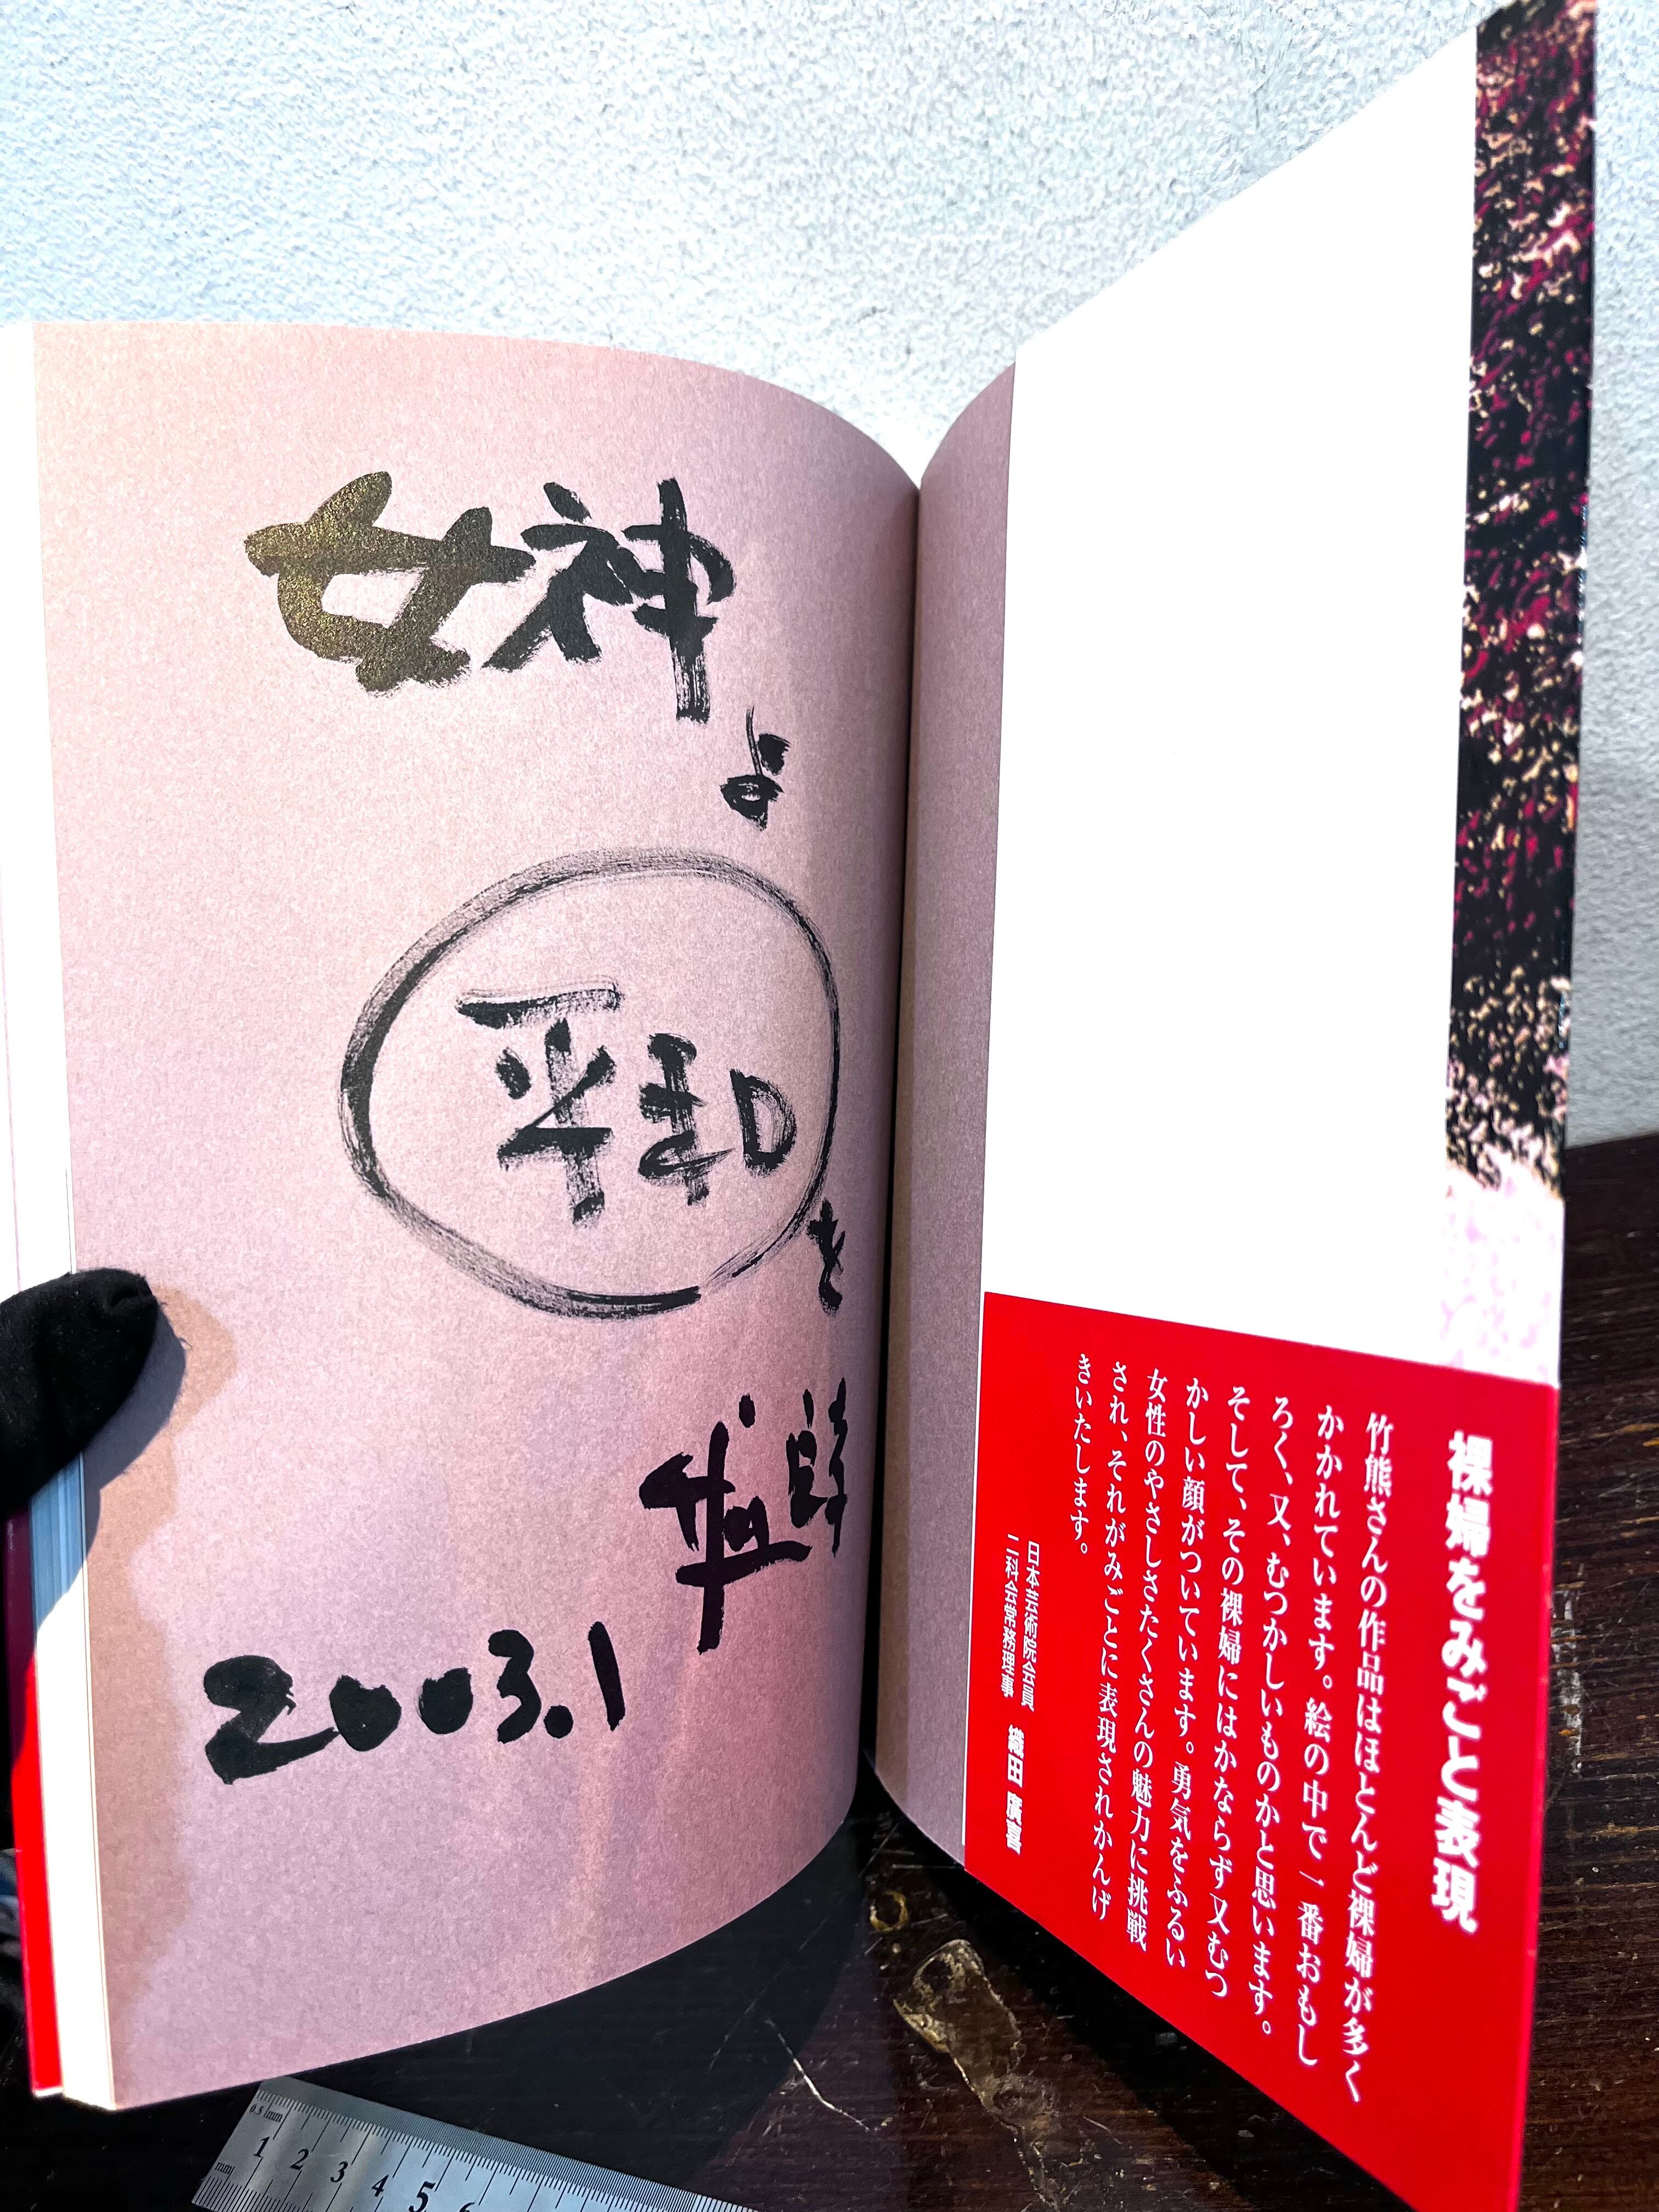 女神よ
平和
を
2003.1
裸婦をみごと表現
竹熊さんの作品はほとんど裸婦が多く
かかれています。絵の中で一番おもし
ろく、又、むつかしいものかと思います。
そして、その裸婦にはかならず又むつ
かしい顔がついています。勇気をふるい
女性のやさしさたくさんの魅力に挑戦
され、それがみごとに表現されかんげ
きいたします。
日本芸術院会員
二科会常務理事
織田廣喜
0.5 mm
mm
1 2 3 4 5 6